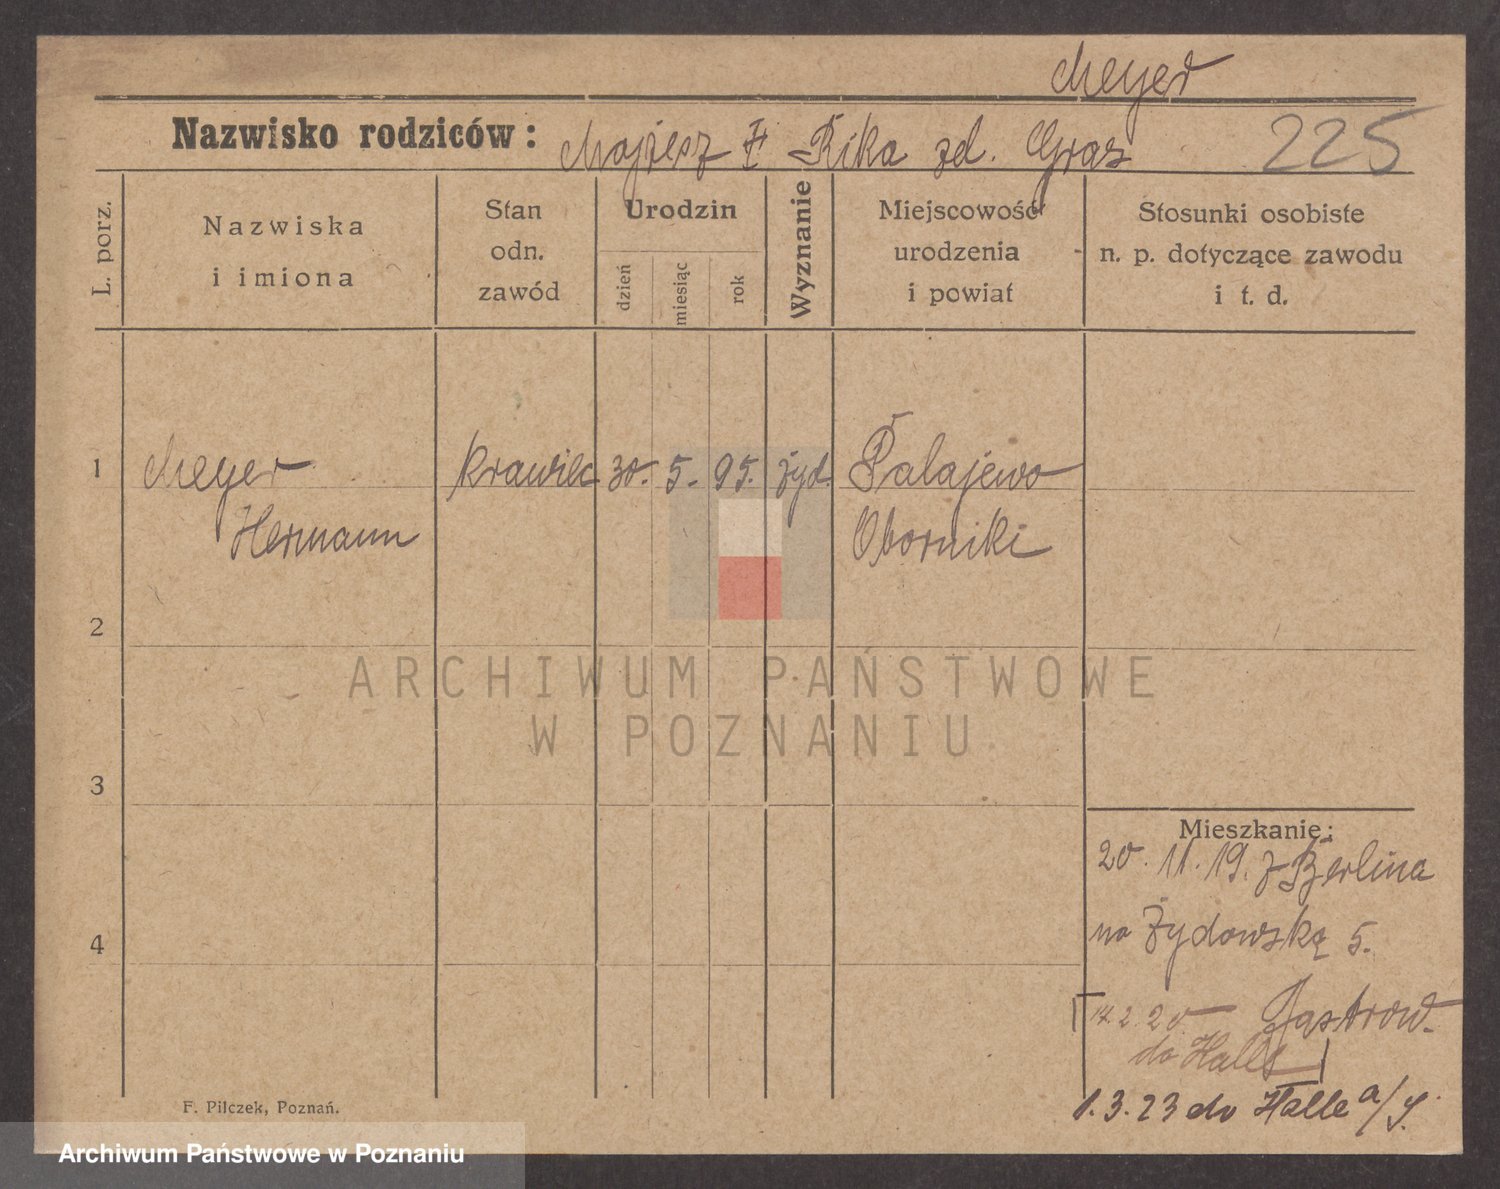 Meyer
Nazwisko rodziców: Mojżesz F Rika zd. Gras
225
L. porz.
Nazwiska
i imiona
Stan
odn.
zawód
Urodzin
dzień
miesiąc
rok
Wyznanie
Miejscowość
urodzenia
i powiat
Stosunki osobiste
n. p. dotyczące zawodu
i t. d.
1 Meyer krawiec 30. 5. 95. żyd. Palajewo
Hermann Oborniki
2
ARCHIWUM PAŃSTWOWE
W POZNANIU
3
Mieszkanie:
20. 11. 19. z Berlina
4
na Żydowską 5.
Jastrow.
17. 2. 20
do Halle
1. 3. 23 do Halle a/S.
F. Pilczek, Poznań.
Archiwum Państwowe w Poznaniu